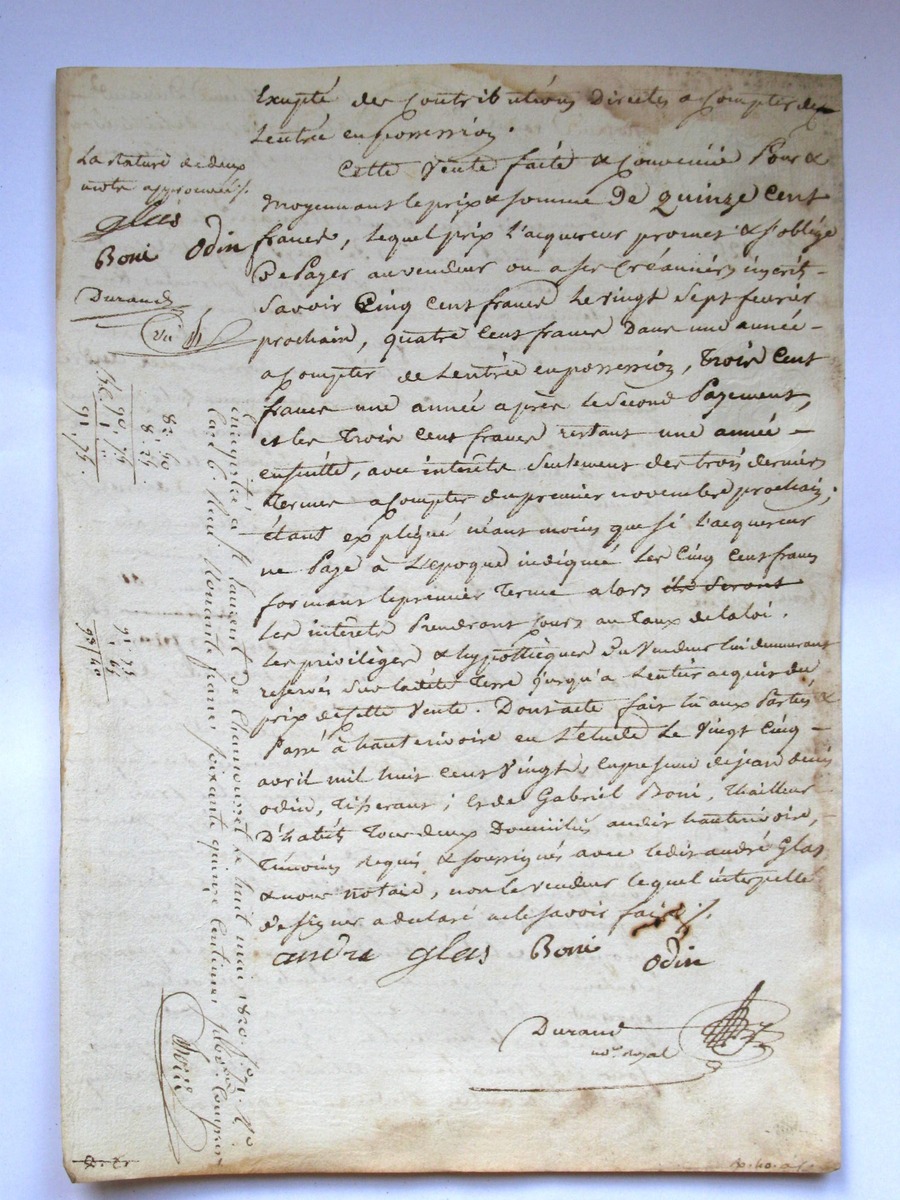 Exepté des Contributions Directes a Compter de
Lentré en possession.
Cette Vente faite & Convenuë Pour &
Moyennant le prix & Somme De Quinze Cent
francs, Lequel prix L'acquereur promet & S'oblige
De Payer au vendeur ou a ses Créanciers inscrit
Savoir Cinq Cent francs Le vingt Sept fevrier
prochain, quatre Cent francs Dans une année
a Compter de Lentrée en possession, Trois Cent
francs une année après Le Second Payement,
et les Trois Cent francs restant une année
ensuitte, avec interêts Seulement des trois derniers
Termes a Compter du premier novembre prochain;
étant expliqué néant moins que Si L'acquereur
ne Paye à L'époque indiquée Les Cinq Cent francs
formant le premier Terme alors ils Seront
Les interêts Prendront Cours au Taux de la loi.
Les privilèges & hypothèques Du Vendeur lui demeurant
reservés Sur ladite Terre jusqu'a Lentier acquit du
prix de Cette Vente. Dont acte fait lu aux Parties &
Passé à hauterivoire en L'etude Le Vingt Cinq
avril mil huit Cent Vingt, en presence de jean
odin, Tisserant; et de Gabriel Boni, Thailleur
D'habits Tous deux Domiciliés audit hauterivoire,
Témoins requis & soussignés avec ledit andré Glas
& nous notaire, non le vendeur lequel interpellé
de Signer a declaré ne le savoir faire ./.
andre glas Boni odin
Durand
no.re royal
La rature de deux
mots approuvée ./.
glas
Boni Odin
Durand
82. 50
8. 25
90. 75
1. "
91. 75
91. 75
1. 65
93. 40
Enregistré à St laurent de Chamousset le huit mai 1820 f.o 71 r.o
Case 6 Recu Nonante francs soixante quinze Centimes